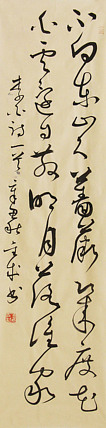 不向東山久薔薇幾度花
白雲還自散明月落誰家
李白詩一首辛丑秋書